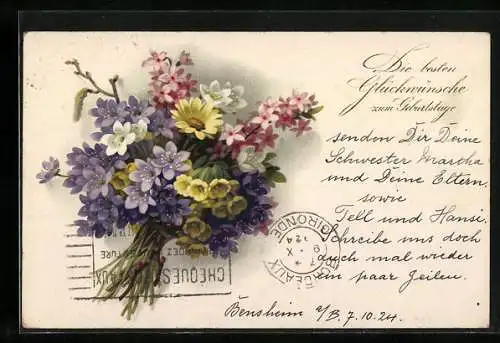 Die besten
Glückwünsche
zum Geburtstage
senden Dir Deine
Schwester Mascha
und Deine Eltern.
sowie
Tell und Hansi.
Schreibe uns doch
auch mal wieder
ein paar Zeilen.
Bensheim a/B. 7.10.24.
BORDEAUX
GIRONDE
9 - X
* 24
CHEQUES